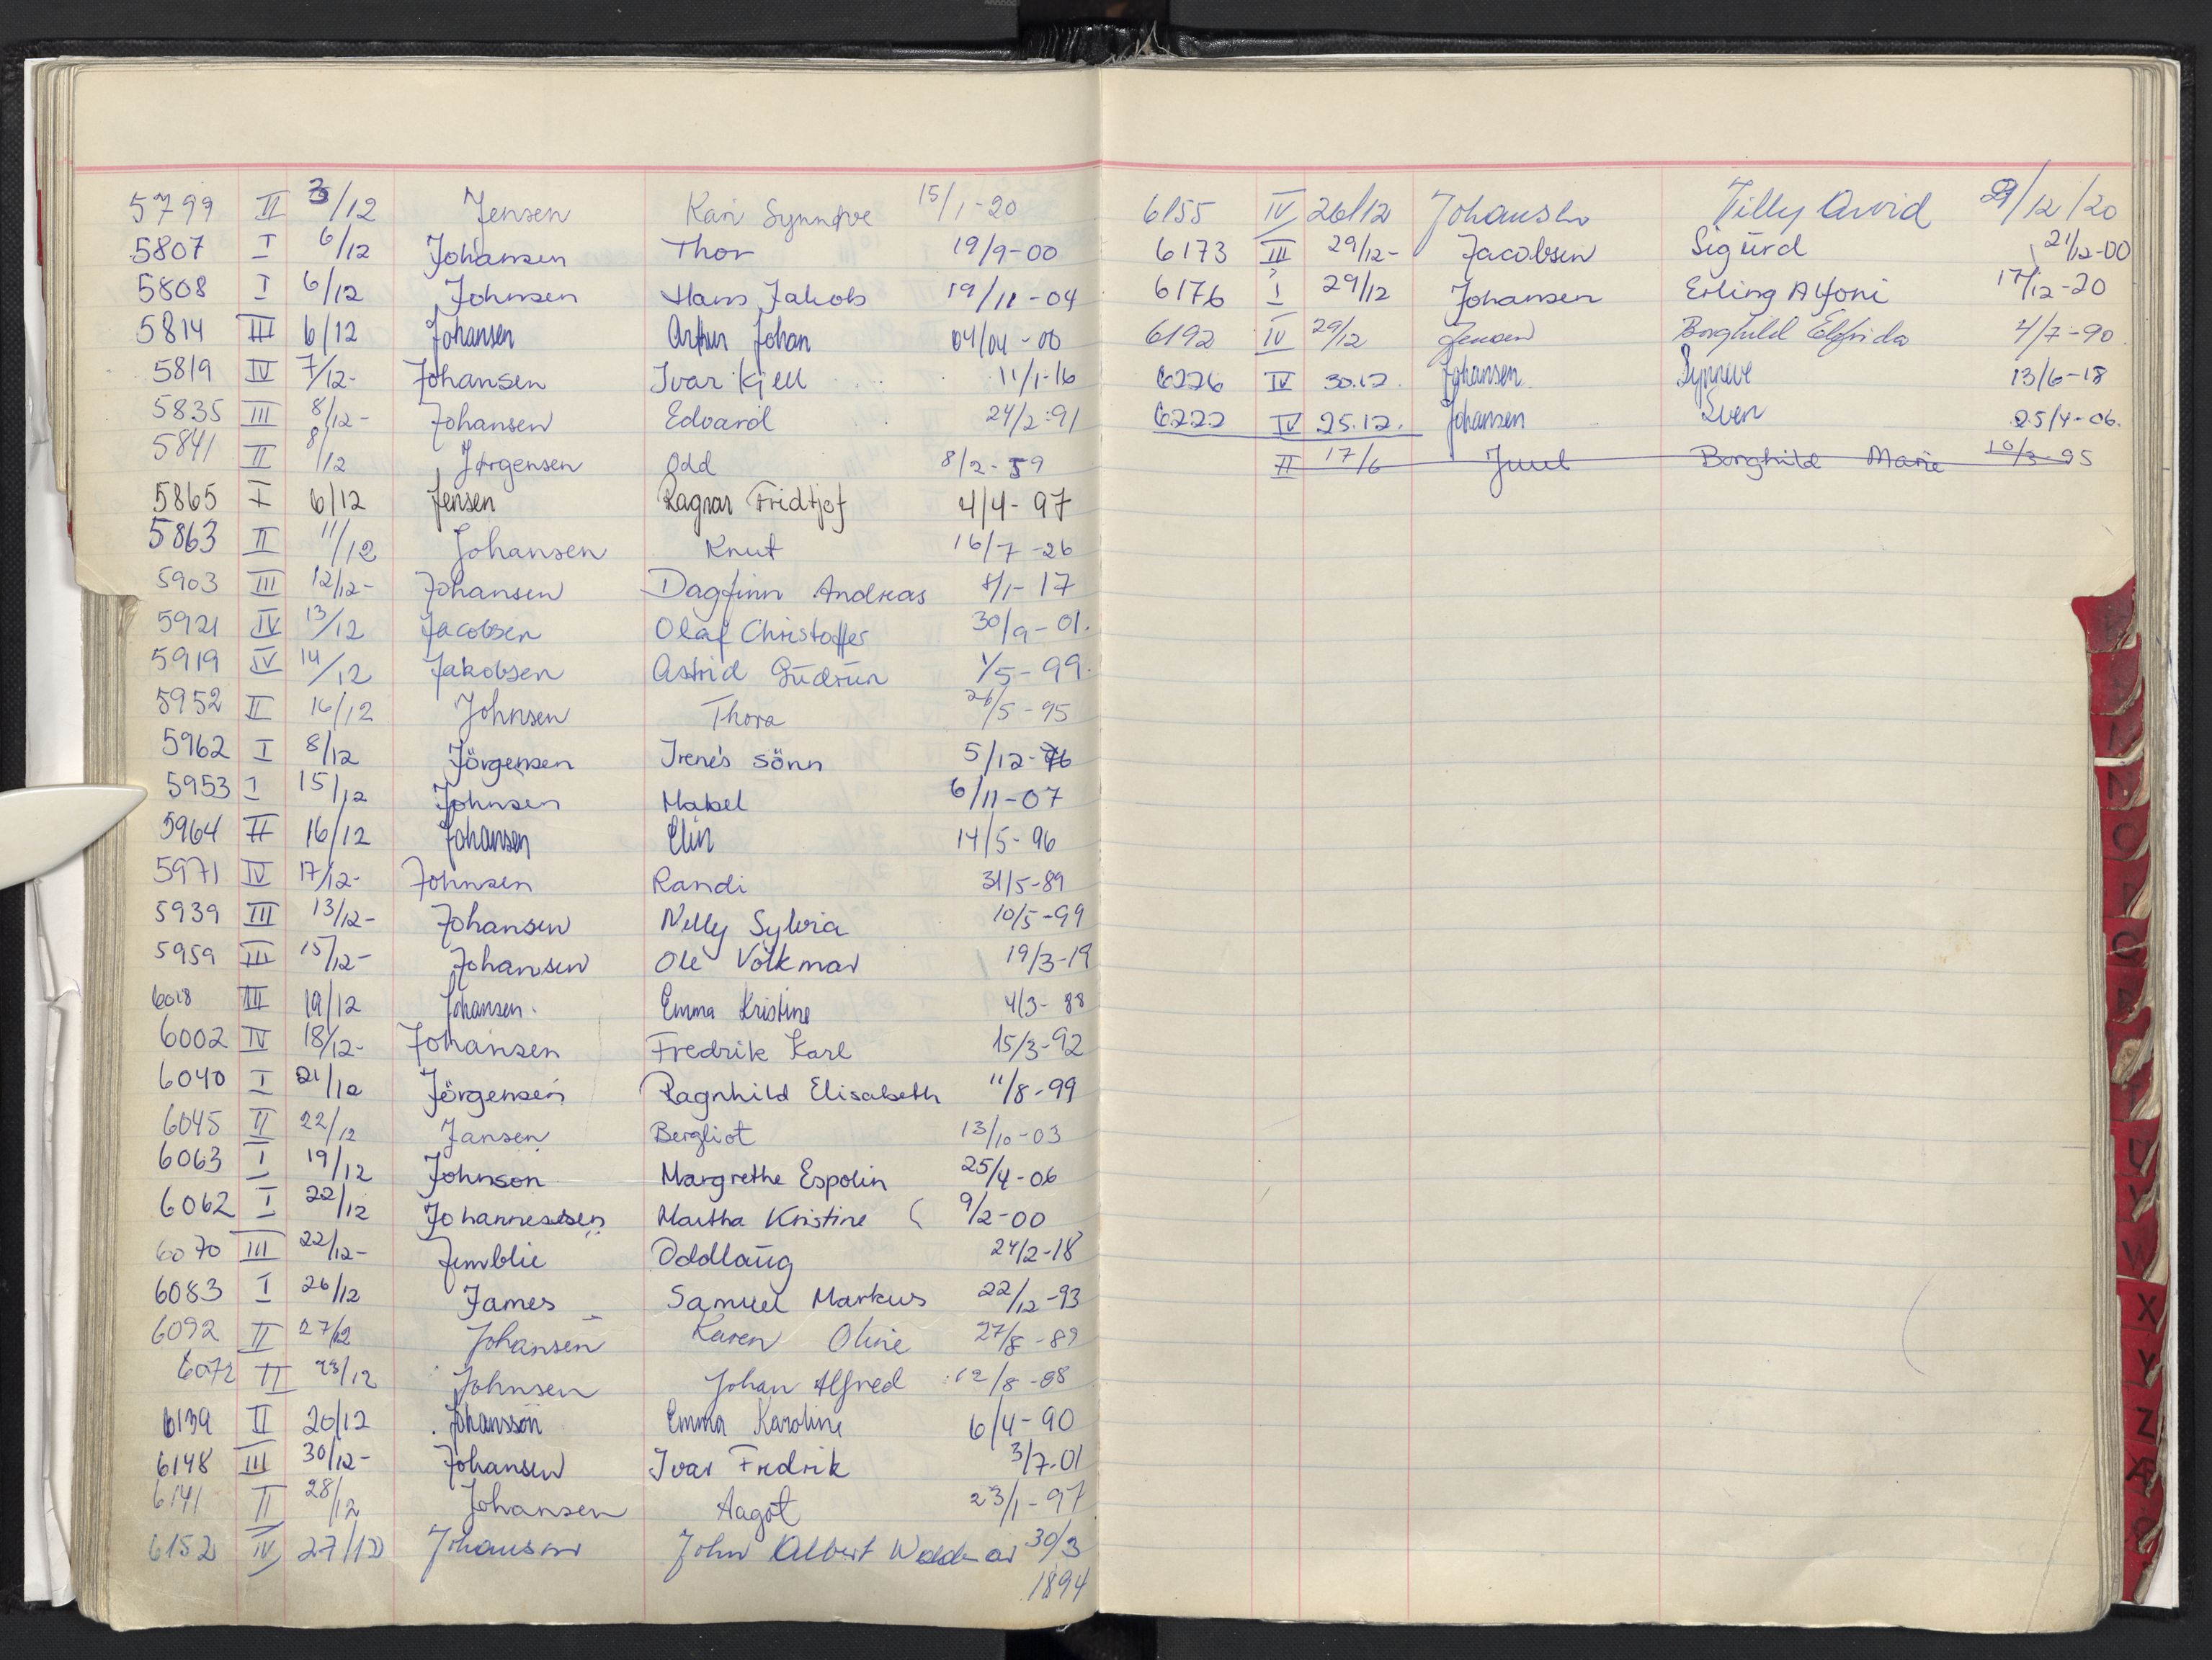 5799 II 3/12 Jensen Kari Synnøve 15/1-20
5807 I 6/12 Johansen Thor 19/9-00
5808 I 6/12 Johnsen Hans Jakob 19/11-04
5814 III 6/12 Johansen Arthur Johan 04/04-00
5819 IV 7/12- Johansen Ivar Kjell 11/1-16
5835 III 8/12- Johansen Edvard 24/2-91
5841 II 8/12 Jørgensen Odd 8/2-59
5865 I 6/12 Jensen Ragnar Fridtjof 4/4-97
5863 II 11/12 Johansen Knut 16/7-26
5903 III 12/12- Johansen Dagfinn Andreas 8/1-17
5921 IV 13/12 Jacobsen Olaf Christoffer 30/9-01.
5919 IV 14/12 Jakobsen Astrid Gudrun 1/5-99.
5952 II 16/12 Johnsen Thora 26/5-95
5962 I 8/12 Jörgensen Irene's sönn 5/12-76
5953 I 15/12 Johnsen Mabel 6/11-07
5964 II 16/12 Johansen Elin 14/5-96
5971 IV 17/12- Johnsen Randi 31/5-89
5939 III 13/12- Johansen Nelly Sylvia 10/5-99
5959 III 15/12- Johansen Ole Volkmar 19/3-19
6018 III 19/12 Johansen Emma Kristine 4/3-88
6002 IV 18/12- Johansen Fredrik Karl 15/3-92
6040 I 21/12 Jörgensen Ragnhild Elisabeth 11/8-99
6045 II 22/12 Jansen Bergliot 13/10-03
6063 I 19/12 Johnson Margrethe Espolin 25/4-06
6062 I 22/12 Johannessen Martha Kristine 9/2-00
6070 III 22/12- Jemblie Oddlaug 24/2-18
6083 I 26/12 James Samuel Markus 22/12-93
6092 II 27/12 Johansen Karen Oline 27/8-89
6072 II 23/12 Johnsen Johan Alfred 12/8-08
6139 II 20/12 Johansson Emma Karoline 6/4-90
6148 III 30/12- Johansen Ivar Fredrik 3/7-01
6141 II 28/12 Johansen Aagot 23/1-97
6152 IV 27/12 Johansen John Albert Waldemar 30/3
1894
6155 IV 26/12 Johansen Villy Arvid 29/12/20
6173 III 29/12- Jacobsen Sigurd 21/12-00
6176 I 29/12 Johansen Erling Alfoni 17/12-20
6192 IV 29/12 Jensen Borghild Elfrida 4/7-90
6226 IV 30.12. Johansen Synneve 13/6-18
6222 IV 25.12. Johansen Sven 25/4-06.
II 17/6 Juul Borghild Marie 10/3-95
N
O
P
Q
R
T
U
V
W
X
Y
Z
Æ
Ø